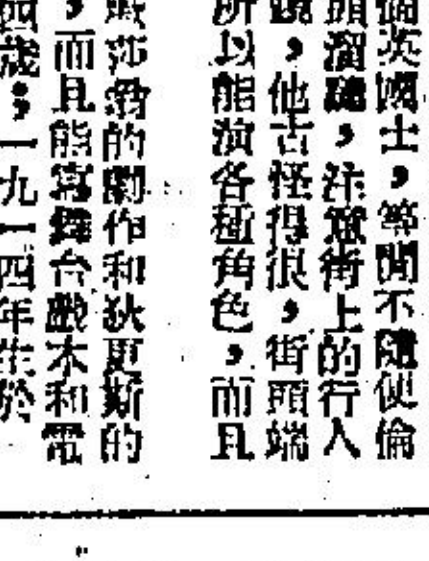 個英國士，等閒不隨便倫
頭溜躂，注意街上的行人
鏡，他古怪得很，街頭端
所以能演各種角色，而且
莎翁的劇作和狄更斯的
，而且能寫舞台戲本和電
四歲；一九一四年生於